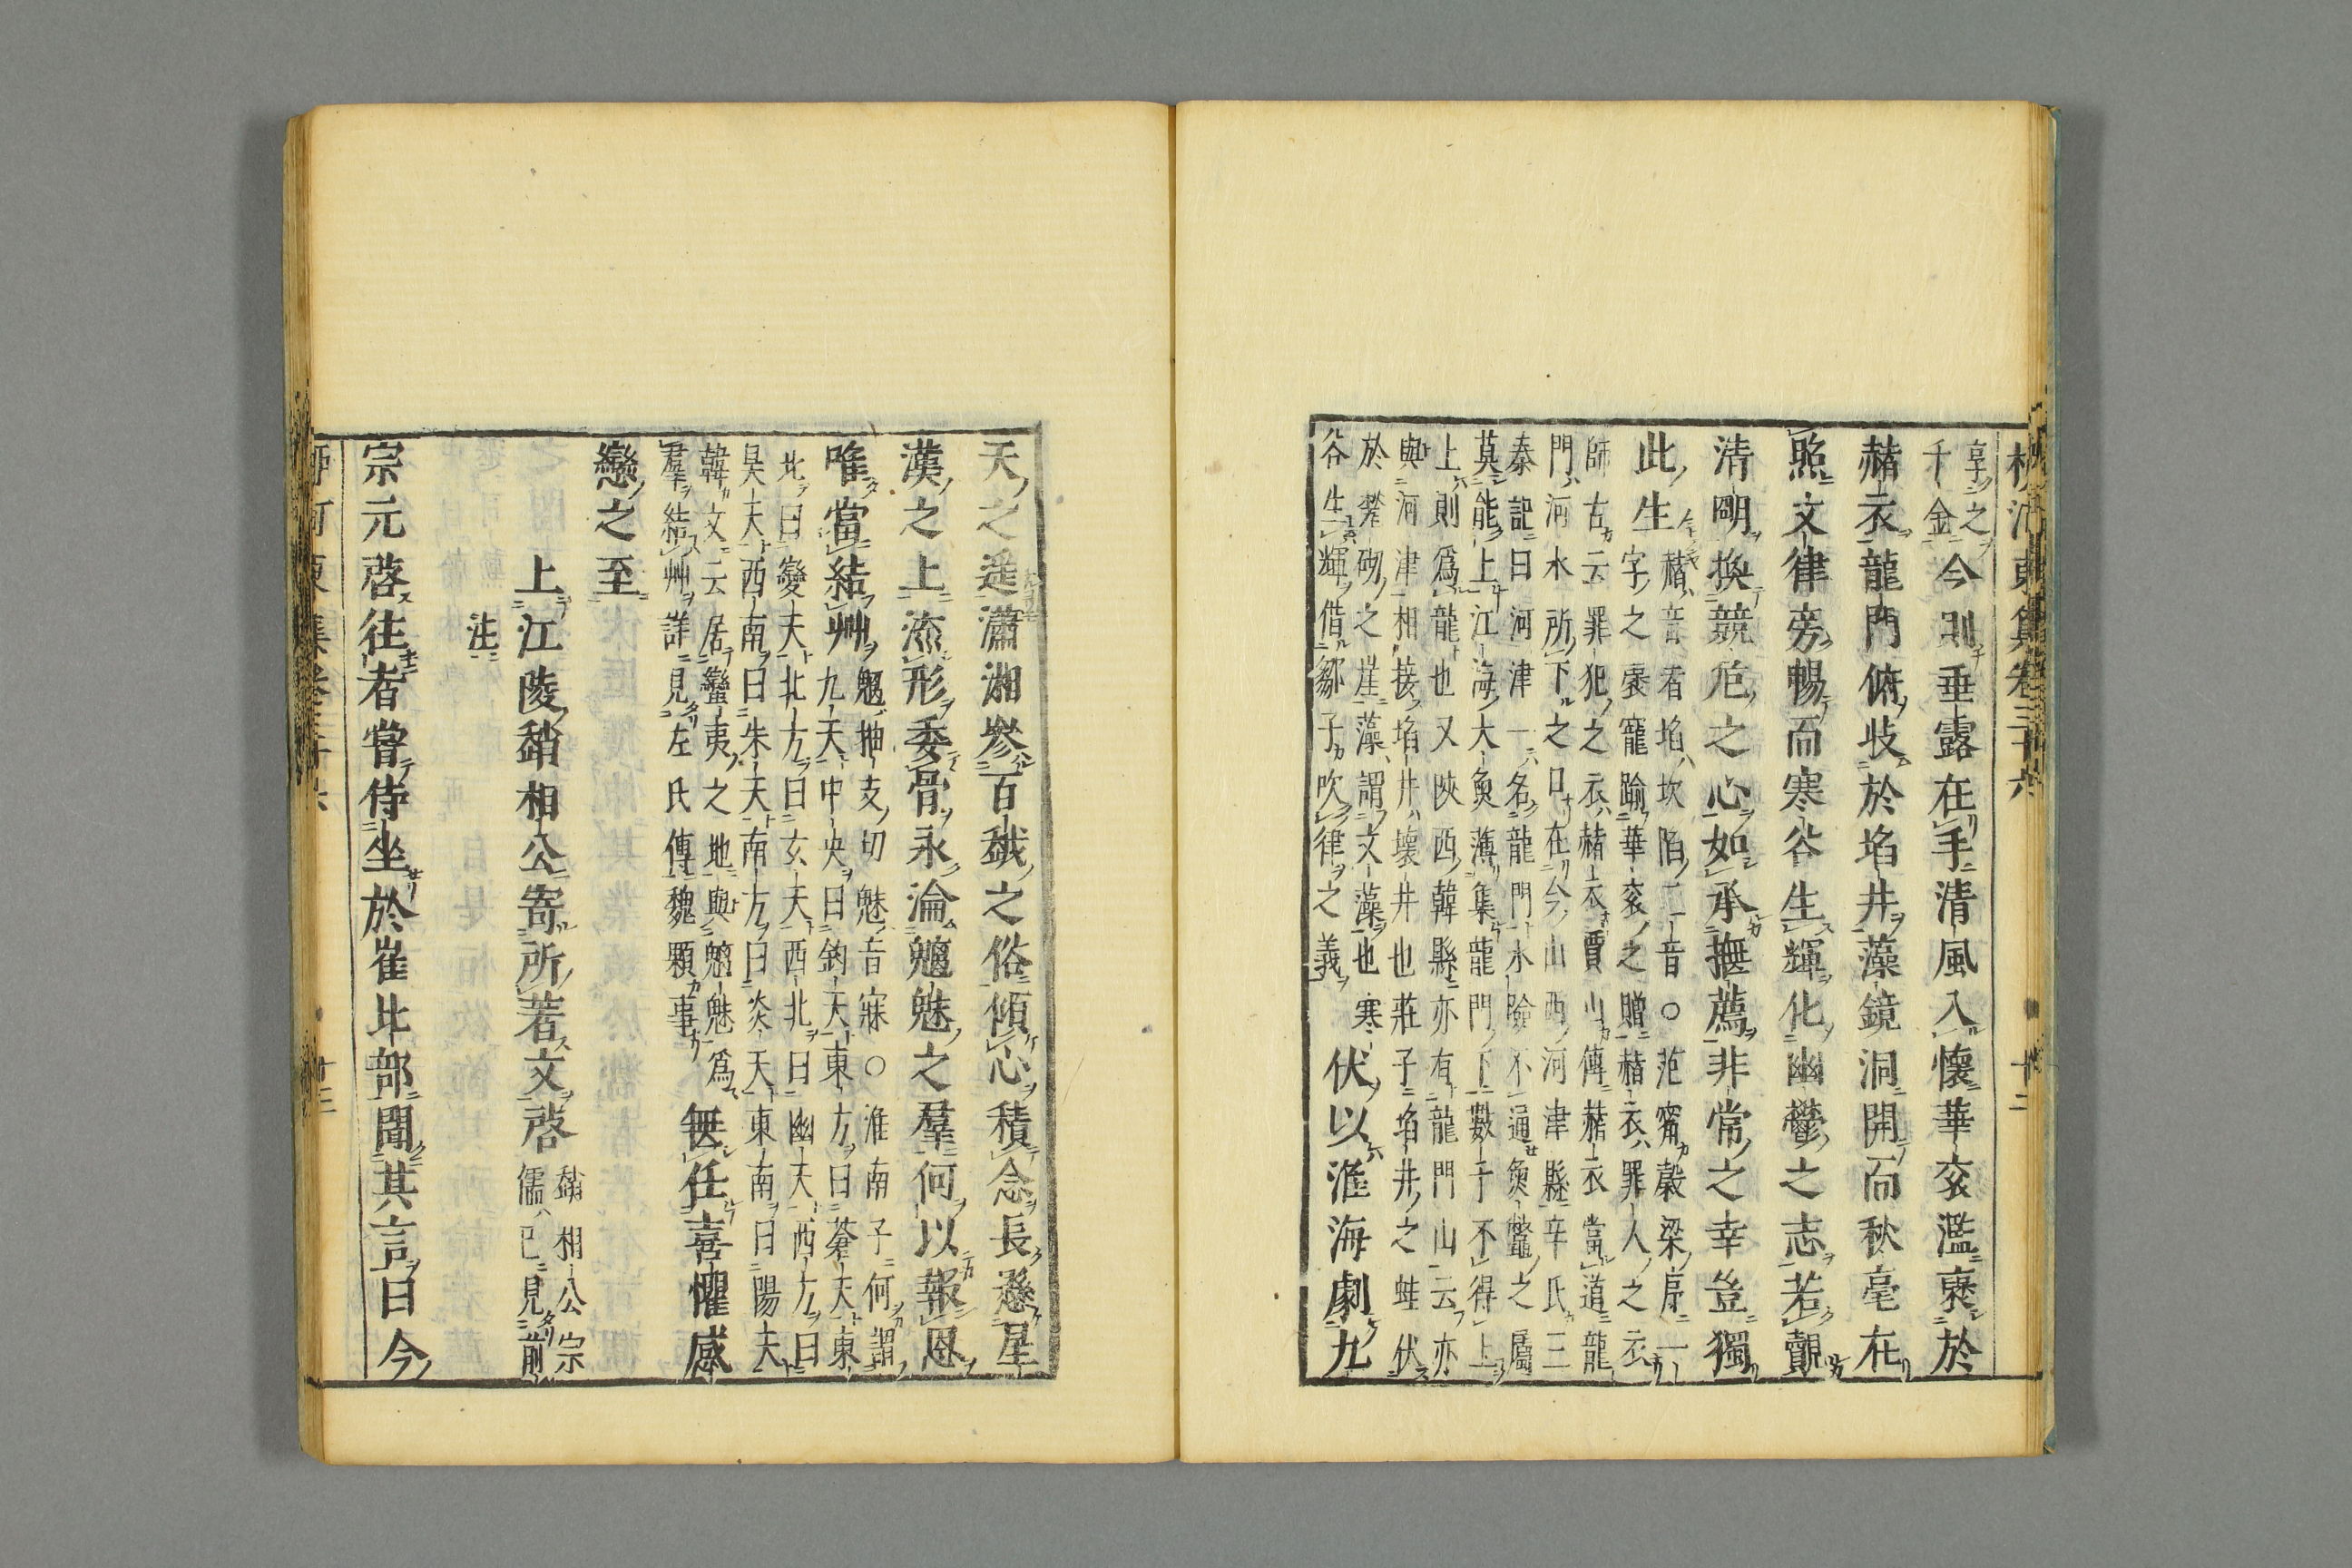 柳河東集卷三十六　十二
享之
千金
今則垂露在手清風入懷華衮濫褒於
赭衣龍門俯收於埳井藻鏡洞開而秋毫在
照文律旁暢而寒谷生輝化幽鬱之志若觀
清明換兢危之心如承撫薦非常之幸豈獨
此生
赭音者埳坎陷二音○范甯穀梁序一
字之褒寵踰華衮之贈赭衣罪人之衣
師古云罪犯之衣赭衣賈山傳赭衣當道龍
門河水所下之口在今山西河津縣辛氏三
秦記曰河津一名龍門水險不通魚鼈之屬
莫能上江海大魚薄集龍門下數千不得上
上則爲龍也又陜西韓縣亦有龍門山云亦
與河津相接埳井壞井也莊子埳井之蛙伏
於
砌之崖藻謂文藻也寒
谷生輝借鄒子吹律之義
伏以淮海劇九
天之遥瀟湘叅百越之俗傾心積念長懸星
漢之上流形委骨永淪魑魅之羣何以報恩
唯當結艸
魑抽支切魅音寐○淮南子何謂
九天中央曰鈞天東方曰蒼天東
北曰變天北方曰玄天西北曰幽天西方曰
昊天西南曰朱天南方曰炎天東南曰陽天
韓文云居蠻夷之地與魑魅爲
羣結艸詳見左氏傳魏顆事
無任喜懼感
戀之至
上江陵趙相公寄所著文啓
趙相公宗
儒巳見前
注
宗元啓往者嘗侍坐於崔比部聞其言曰今
柳河東集卷三十六　十二